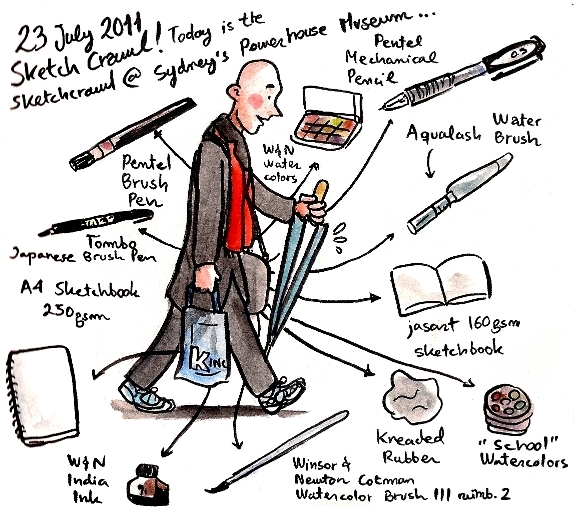 23 July 2011
Sketch Crawl! Today is the
sketchcrawl @ Sydney's Powerhouse Museum...
Pentel
Mechanical
Pencil
0.5
Pentel
Brush
Pen
W&N
Water
colors
Aqualash Water
Brush
Tombo
Japanese Brush Pen
A4 Sketchbook
250gsm
jasart 160gsm
sketchbook
KINO
Kneaded
Rubber
"School"
Watercolors
W&N
India
Ink
Winsor &
Newton Cotman
Watercolor Brush 111 numb. 2